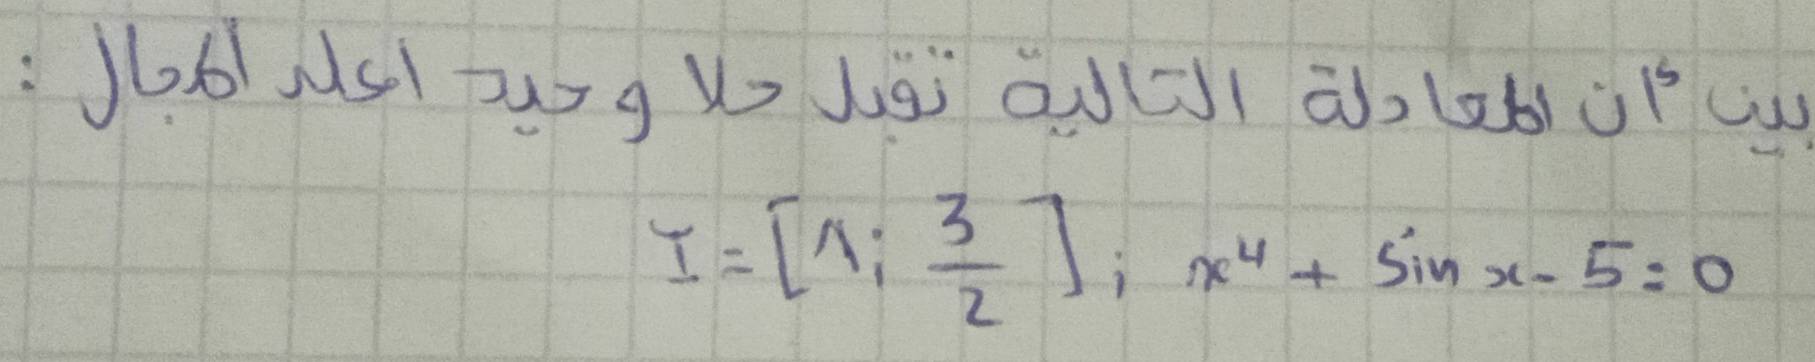 بين أن المعادلة التالية تقبل حلا وحيدا على المجال :
I = [1; 3/2] ; x⁴ + sin x - 5 = 0